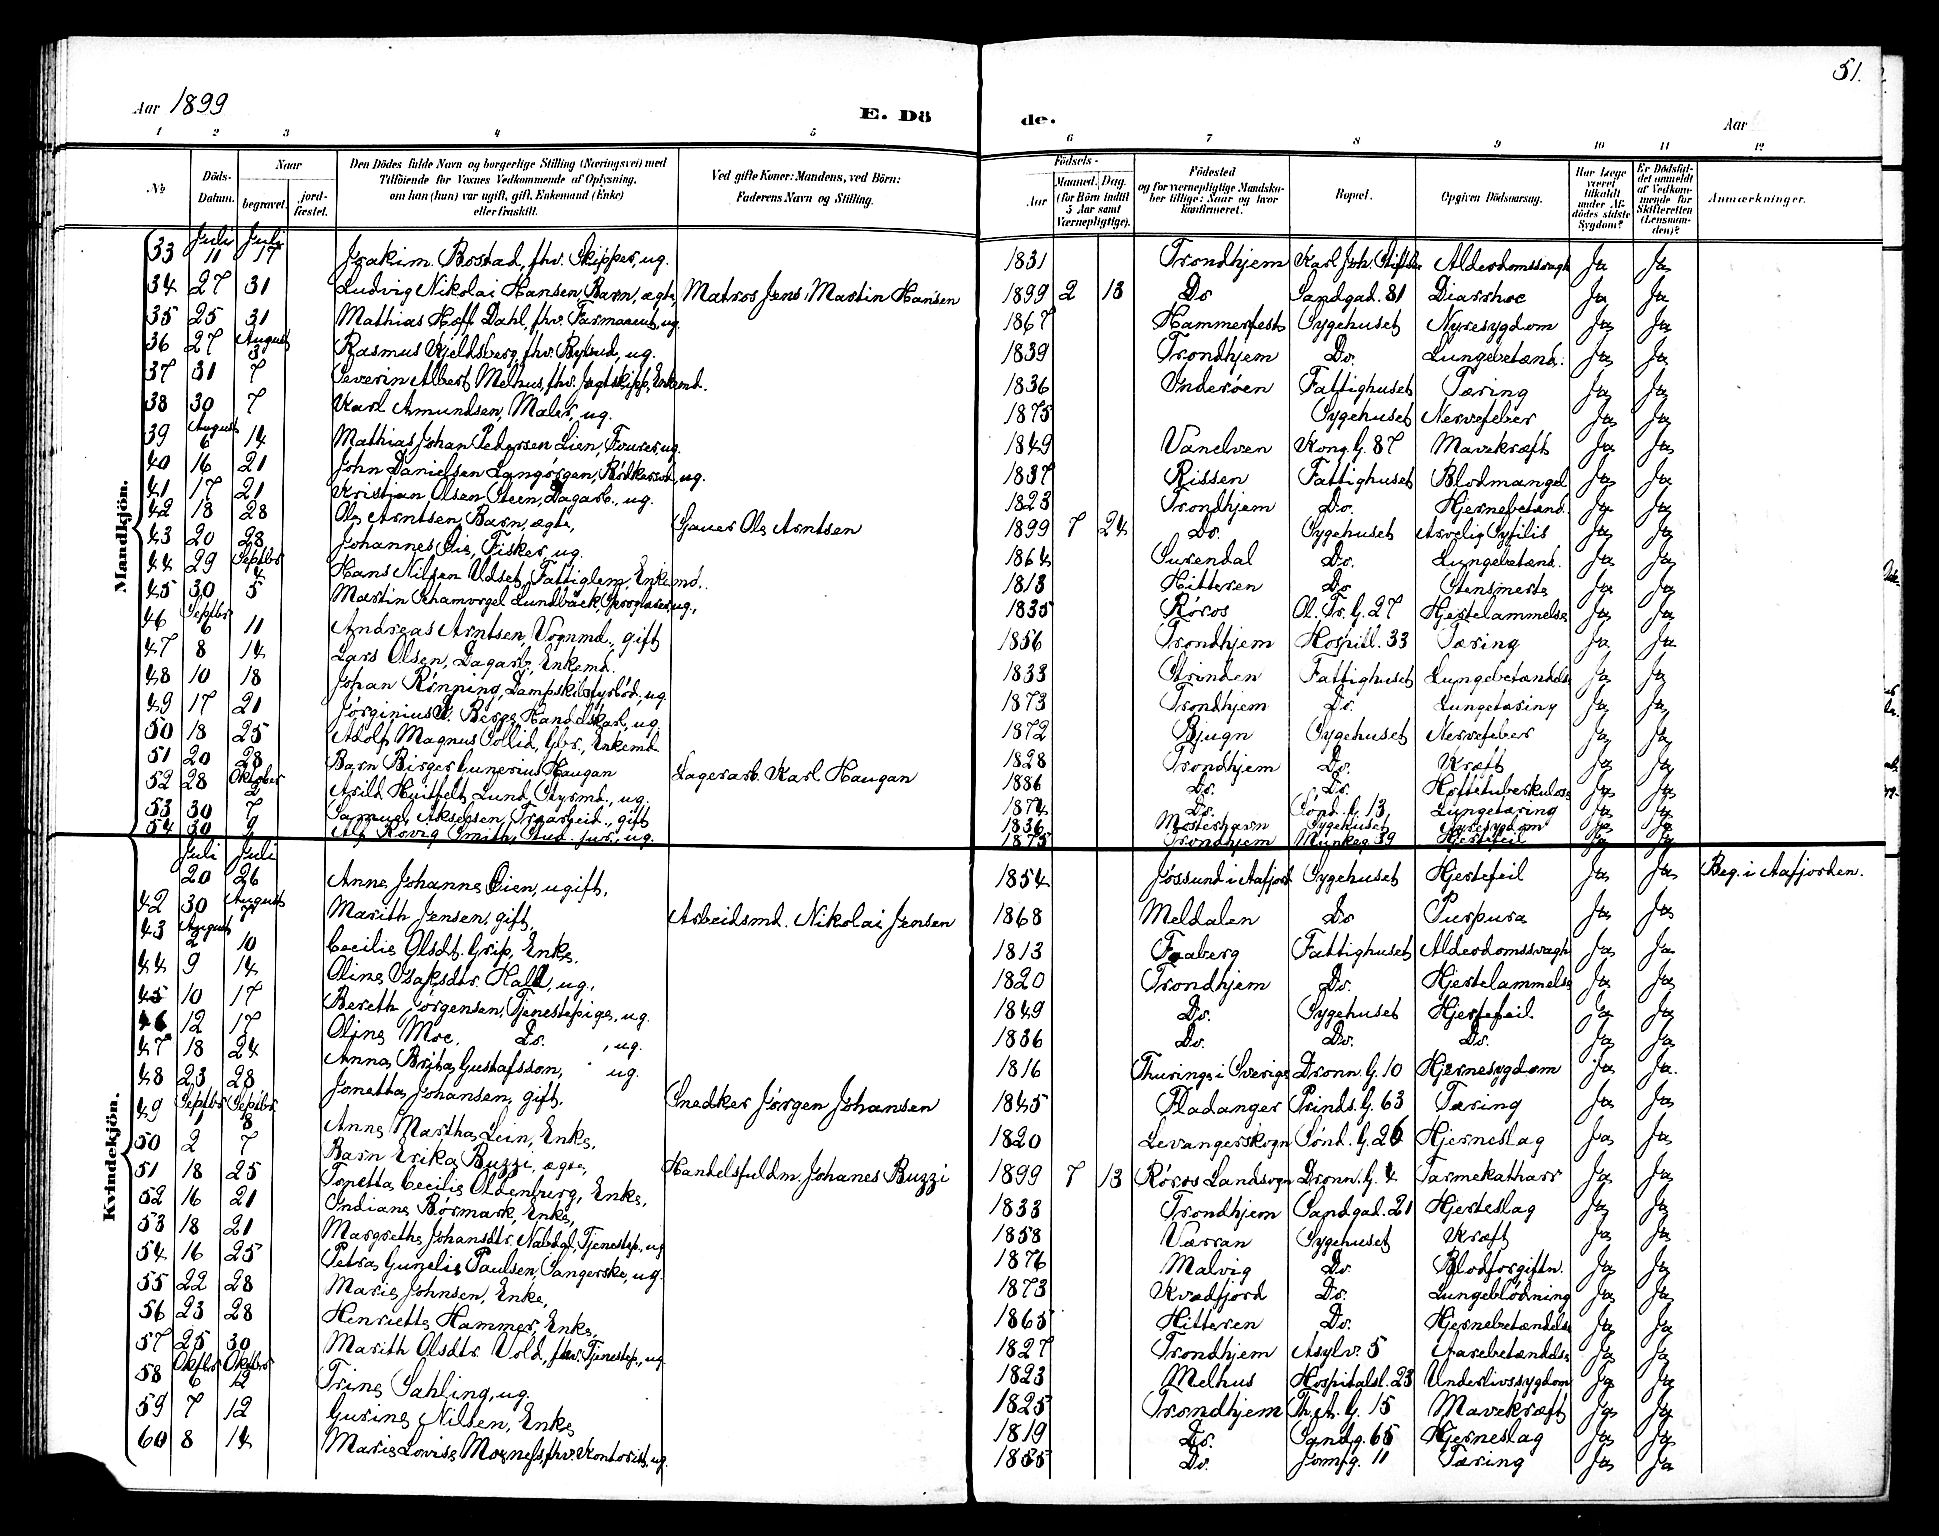 51.
Aar 1899 E. Dö de. Aar
1 2 3 4 5 6 7 8 9 10 11 12
No
Döds-Datum.
Naar begravet. jord-fæstet.
Den Dödes fulde Navn og borgerlige Stilling (Næringsvei) med Tilföiende for Voxnes Vedkommende af Oplysning, om han (hun) var ugift, gift, Enkemand (Enke) eller fraskilt.
Ved gifte Koner: Mandens, ved Börn: Faderens Navn og Stilling.
Födsels-
Aar Maaned. Dag. (for Börn indtil 5 Aar samt Værnepligtige).
Födested og for værnepligtige Mandskaber tillige: Naar og hvor konfirmeret.
Bopæl.
Opgiven Dödsaarsag.
Har Læge været tilkaldt under Afdödes sidste Sygdom?
Er Dödsfaldet anmeldt af Vedkommende for Skifteretten (Lensmanden)?
Anmærkninger.
Mandkjön.
33 Juli 11 Juli 17 Joakim Bostad, fhv. Skipper, ug. 1831 Trondhjem Karl Joh. Stiftelse Alderdomssvagh Ja Ja
34 27 31 Ludvig Nikolai Hansen Barn, ægte, Matros Jens Martin Hansen 1899 2 13 Do Sandgad. 81 Diarrhoe Ja Ja
35 25 31 Mathias Hoff Dahl, fhv. ug. 1867 Hammerfest Sygehuset Nyresygdom Ja Ja
36 27 August 3 Rasmus Kjeldsberg, fhv. ug. 1839 Trondhjem Do. Lungebetænd. Ja Ja
37 31 7 Severin Albert Melhus, fhv. Jagtskipp, Enkemd. 1836 Inderøen Fattighuset Tæring Ja Ja
38 30 7 Karl Amundsen, Maler, ug. 1875 Sygehuset Nervefeber Ja Ja
39 August 6 14 Mathias Johan Pedersen Lien, Fourer, ug. 1849 Vanelven Kong. G. 87 Mavekræft Ja Ja
40 16 21 John Danielsen Langørgen, ug. 1837 Rissen Fattighuset Blodmangel Ja Ja
41 17 21 Kristian Olsen Steen, Dagarb., ug. 1823 Trondhjem Do. Hjernebetænd. Ja Ja
42 18 28 Ole Arntsen, Barn, ægte, Ole Arntsen 1899 7 24 Do. Sygehuset Arvelig Syfilis Ja Ja
43 20 28 Johannes Øie, Fisker, ug. 1864 Surendal Do. Lungebetænd. Ja Ja
44 29 Septbr 4 Hans Nilsen Udset, Fattiglem, Enkemd. 1813 Hitteren Do Stensmerte Ja Ja
45 30 5 Martin Lundbäck, ug., 1835 Røros Ol. Tr. G. 27 Hjertelammelse Ja Ja
46 Septbr 6 11 Andreas Arntsen, Vognmd., gift 1856 Trondhjem Hospitl. 33 Tæring Ja Ja
47 8 14 Lars Olsen, Dagarb., Enkemd. 1833 Strinden Fattighuset Lungebetændels Ja Ja
48 10 18 Johan Rønning, Dampskibsfyrbød., ug. 1873 Trondhjem Do. Lungetæring Ja Ja
49 17 21 Jørginius Berge, Handelskarl, ug. 1872 Bjugn Sygehuset Nervefeber Ja Ja
50 18 25 Adolf Magnus Sollid, Gbr., Enkemd 1828 Trondhjem Do. Kræft Ja Ja
51 20 28 Barn Birger Gunerius Haugan Lagerarb. Karl Haugan 1886 Do. Do. Hoftetuberkulose Ja Ja
52 28 Oktober 2 Arild Huitfelt Lund, Styrmd., ug. 1874 Do. Sønd. G. 13 Lungetæring Ja Ja
53 30 7 Samuel Akselsen, gift 1836 Mosterhavn Sygehuset Nyresygdom Ja Ja
54 30 Alf Rovig Smith, Stud. jur., ug. 1875 Trondhjem Munkeg. 39 Hjertefeil Ja Ja
Kvindekjön.
Juli 20 Juli 26 Anne Johanne Øien, ugift, 1854 Jøssund i Aafjord Sygehuset Hjertefeil Ja Ja Beg. i Aafjorden.
42 30 August 7 Marith Jensen, gift, Arbeidsmd. Nikolai Jensen 1868 Meldalen Do Purpura Ja Ja
43 August 2 10 Cecilie Olsdt. Grip, Enke, 1813 Faaberg Fattighuset Alderdomssvagh Ja Ja
44 9 14 Oline Isaksdtr. Hall, ug, 1820 Trondhjem Do. Hjertelammelse Ja Ja
45 10 17 Bereth Jørgensen, Tjenestepige, ug. 1849 Do. Sygehuset Hjertefeil Ja Ja
46 12 17 Oline Moe, Do. , ug. 1836 Do. Do. Do. Ja Ja
47 18 24 Anna Brita Gustafsson, ug. 1816 Thuringe i Sverige Dronn. G. 10 Hjernesygdom Ja Ja.
48 23 28 Jonetta Johansen, gift, Snedker Jørgen Johansen 1845 Fladanger Prinds. G. 63 Tæring Ja Ja
49 Septbr 1 Septbr 8 Anne Martha Lein, Enke, 1820 Levangerskogn Sønd. G. 26 Hjerneslag Ja Ja
50 2 7 Barn Erika Buzzi, ægte, Handelsfuldm. Johanes Buzzi 1899 7 13 Røros Landsogn Dronn. G. 4 Tarmekatharr Ja Ja
51 18 25 Tonetta Cecilie Oldenburg, Enke, 1833 Trondhjem Sandgad. 21 Hjerteslag Ja Ja
52 16 21 Indiane Børmark, Enke, 1858 Værran Sygehuset Kræft Ja Ja
53 18 21 Margrethe Johansdtr. Tjenestep., ug 1876 Malvig Do. Blodforgiftn. Ja Ja
54 16 25 Petra Gunelie Paulsen, Sangerske, ug. 1873 Kvædfjord Do. Lungeblødning Ja Ja
55 22 28 Marie Johnsen, Enke, 1865 Hitteren Do. Hjernebetændelse Ja Ja
56 23 28 Henriette Hammer, Enke, 1827 Trondhjem Asylv. 5 Aarebetændelse Ja Ja
57 25 30 Marith Olsdtr. Vold, fhv. Tjenestep., ug. 1823 Melhus Hospitalsl. 23 Underlivssygdom Ja Ja
58 Oktbr 6 Oktbr 12 Trine Sahling, ug. 1825 Trondhjem Th. A. G. 15 Mavekræft Ja Ja
59 7 12 Gurine Nilsen, Enke 1819 Do. Sandg. 65 Hjerneslag Ja Ja
60 8 14 Marie Lovise Moeness, fhv. Kontorist, ug. 1855 Do. Jomfg. 11 Tæring Ja Ja